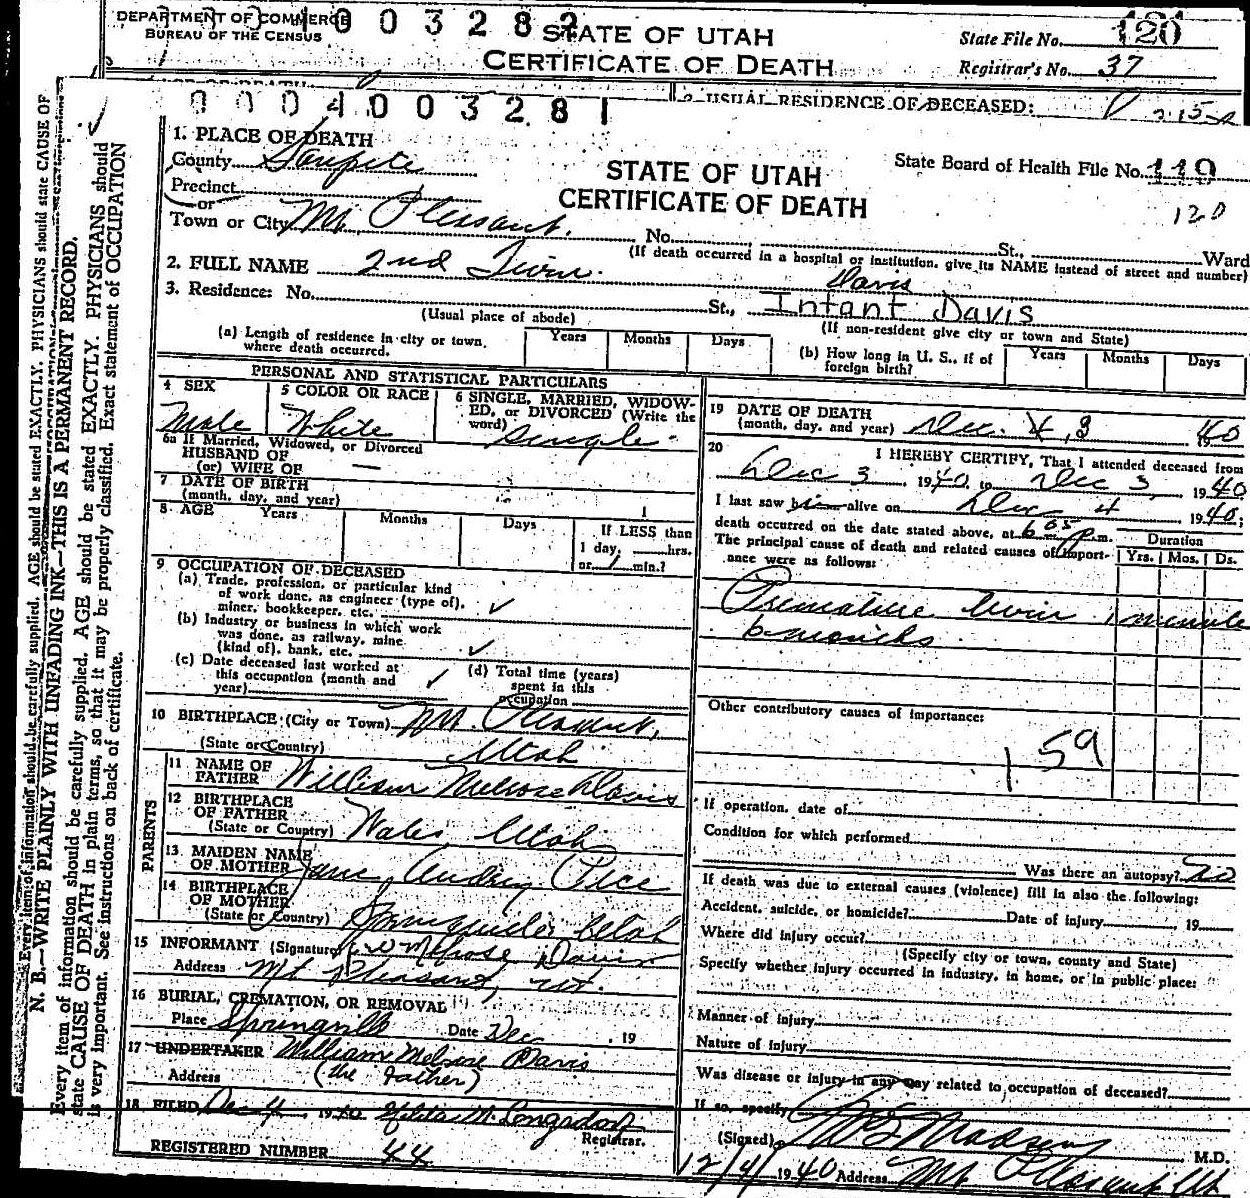 DEPARTMENT OF COMMERCE
BUREAU OF THE CENSUS
0 0 3 2 8 2
STATE OF UTAH
CERTIFICATE OF DEATH
State File No. 120
Registrar's No. 37
2. USUAL RESIDENCE OF DECEASED:
0 0 0 4 0 0 3 2 8 1
1. PLACE OF DEATH
County Sanpete
STATE OF UTAH
CERTIFICATE OF DEATH
State Board of Health File No. 119
120
Precinct
or
Town or City Mt. Pleasant. No. St., Ward
(If death occurred in a hospital or institution, give its NAME instead of street and number)
2. FULL NAME 2nd Twin. Davis
3. Residence: No. St., Infant Davis
(Usual place of abode) (If non-resident give city or town and State)
(a) Length of residence in city or town, where death occurred. Years Months Days
(b) How long in U. S., if of foreign birth? Years Months Days
PERSONAL AND STATISTICAL PARTICULARS
4 SEX Male
5 COLOR OR RACE White
6 SINGLE, MARRIED, WIDOWED, or DIVORCED (Write the word) Single
6a If Married, Widowed, or Divorced
HUSBAND OF
(or) WIFE OF —
7 DATE OF BIRTH
(month, day, and year)
8 AGE Years Months Days If LESS than
1 day, hrs.
or 1 min.?
9 OCCUPATION OF DECEASED
(a) Trade, profession, or particular kind
of work done, as engineer (type of),
miner, bookkeeper, etc. ✓
(b) Industry or business in which work
was done, as railway, mine
(kind of), bank, etc. ✓
(c) Date deceased last worked at
this occupation (month and
year) ✓
(d) Total time (years)
spent in this
occupation
10 BIRTHPLACE (City or Town) Mt. Pleasant,
(State or Country) Utah
PARENTS
11 NAME OF
FATHER William Melrose Davis
12 BIRTHPLACE
OF FATHER
(State or Country) Wales Utah
13 MAIDEN NAME
OF MOTHER Jane Audrey Pace
14 BIRTHPLACE
OF MOTHER
(State or Country) Utah
15 INFORMANT (Signature) Melrose Davis
Address Mt Pleasant, Ut.
16 BURIAL, CREMATION, OR REMOVAL
Place Springville Date Dec , 19
17 UNDERTAKER William Melrose Davis
Address (the father)
18 FILED Dec 4 1940 M. Longsdorf
Registrar.
REGISTERED NUMBER 44
19 DATE OF DEATH
(month, day, and year) Dec. 4, 3 1940
20 I HEREBY CERTIFY, That I attended deceased from
Dec 3, 1940, to Dec 3, 1940
I last saw him alive on Dec 4 1940;
death occurred on the date stated above, at 6 05 p.m.
The principal cause of death and related causes of importance were as follows:
Duration
Yrs. Mos. Ds.
Premature twin 1 minute
6 months
Other contributory causes of importance:
159
If operation, date of
Condition for which performed
Was there an autopsy? no
If death was due to external causes (violence) fill in also the following:
Accident, suicide, or homicide? Date of injury , 19
Where did injury occur?
(Specify city or town, county and State)
Specify whether injury occurred in industry, in home, or in public place:
Manner of injury
Nature of injury
Was disease or injury in any way related to occupation of deceased?
If so, specify
(Signed) Madsen M.D.
12/4/1940 Address Mt Pleasant Ut
Every item of information should be carefully supplied. AGE should be stated EXACTLY. PHYSICIANS should state CAUSE OF
N. B.—WRITE PLAINLY WITH UNFADING INK—THIS IS A PERMANENT RECORD.
Every item of information should be carefully supplied. AGE should be stated EXACTLY. PHYSICIANS should
state CAUSE OF DEATH in plain terms, so that it may be properly classified. Exact statement of OCCUPATION
is very important. See instructions on back of certificate.